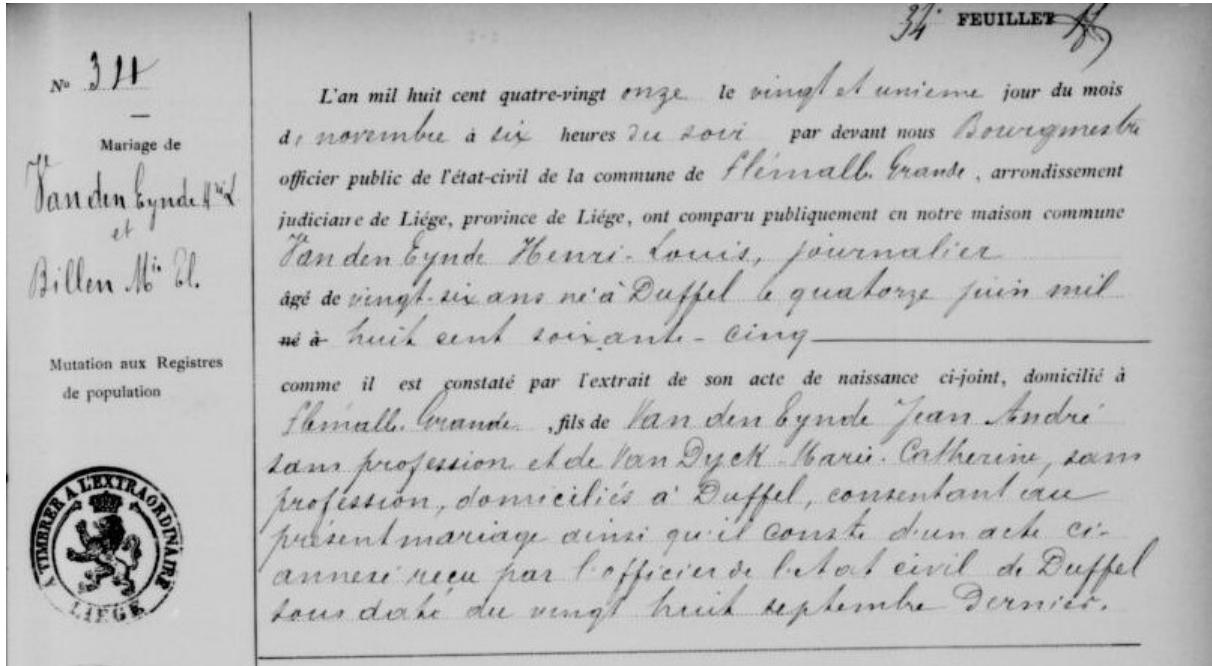 34e FEUILLET
No 34
Mariage de
Van den Eynde Hri L
et
Billen Mie El.
Mutation aux Registres
de population
A TIMBRER A L'EXTRAORDINAIRE
LIEGE
L'an mil huit cent quatre-vingt onze le vingt et unieme jour du mois
de novembre à six heures du soir par devant nous Bourgmestre
officier public de l'état-civil de la commune de Flémalle Grande, arrondissement
judiciaire de Liége, province de Liége, ont comparu publiquement en notre maison commune
Van den Eynde Henri-Louis, journalier
âgé de vingt-six ans né à Duffel le quatorze juin mil
né à huit cent soixante-cinq
comme il est constaté par l'extrait de son acte de naissance ci-joint, domicilié à
Flémalle Grande, fils de Van den Eynde Jean André
sans profession et de Van Dyck Marie-Catherine, sans
profession, domiciliés à Duffel, consentant au
présent mariage ainsi qu'il conste d'un acte ci-
annexé reçu par l'officier de l'etat civil de Duffel
sous date du vingt huit septembre dernier.